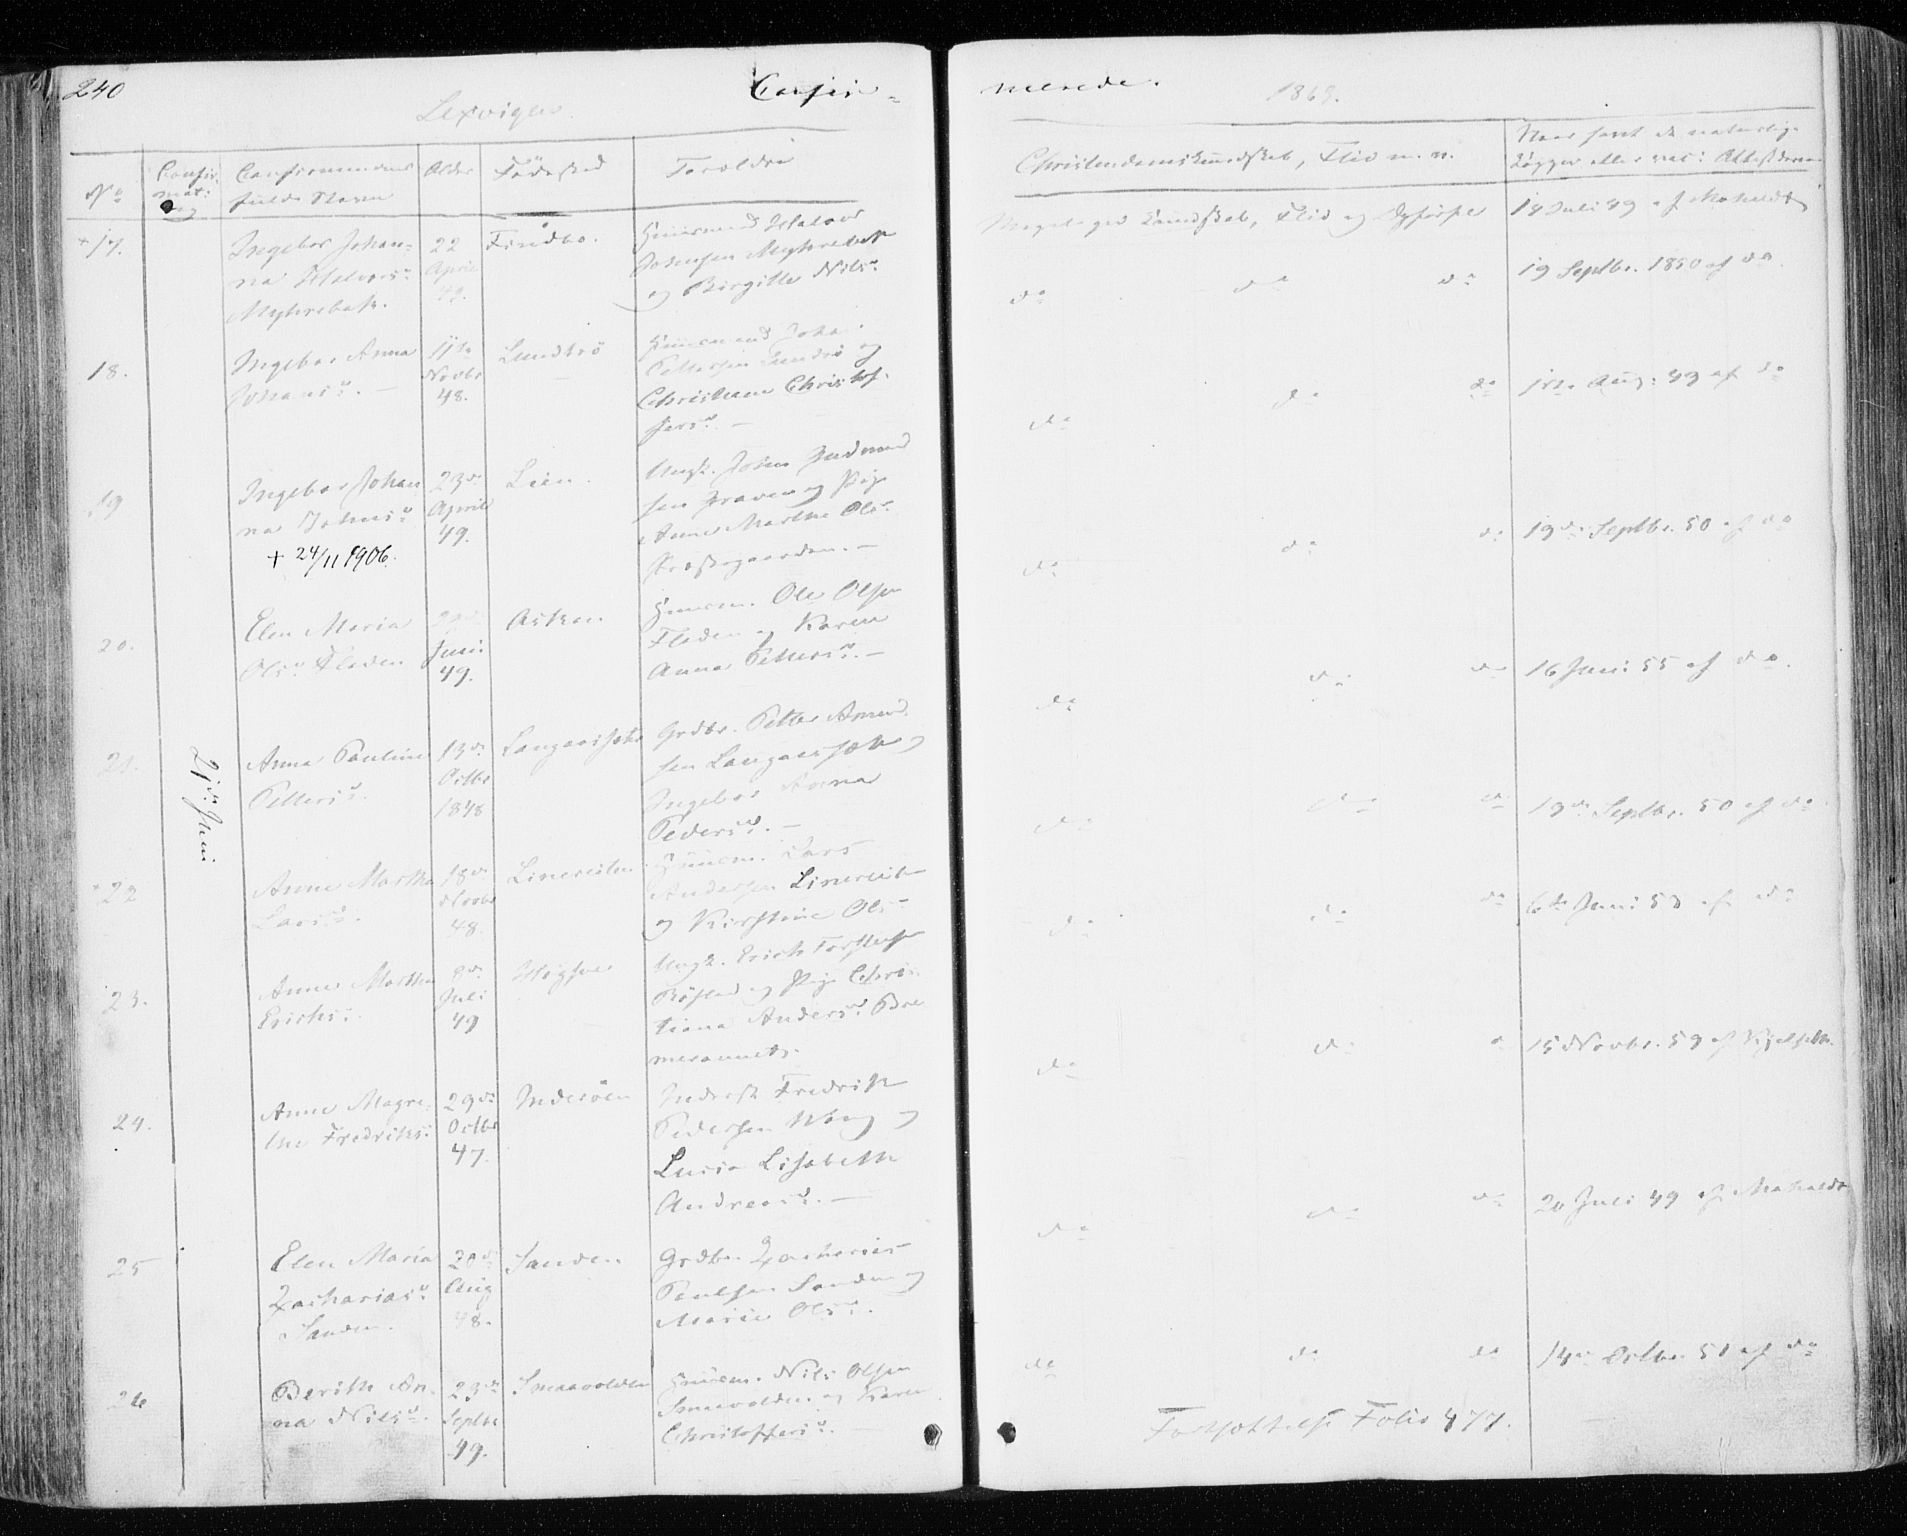 240
Confir=
merede.
Lexvigen
1863.
No
Confir-
mat:
Confirmandens
fulde Navn
Alder
Födested
Foreldre
Christendomskundskab, Flid m. v.
Naar samt de naturlige
Kopper eller vac: Attesterne
+17.
Ingebor Johan=
na Halvorsd:
Myhrebak.
22
April
49.
Husmand Halvor
Johnsen Myhrebak
og Birgitte Nilsd:
Meget god Kundskab, Flid og Opförsel
14 Juli 49 af Mohaldt
18.
Ingebor Anna
Johansd: —
11te
Novbr
48.
Lundtrö
Husmand Johan
Pettersen Lundtrö og
Christiane Christof-
fersd: —
do
do
do
19 Septbr. 1850 af do.
19
Ingebor Johan
na Johnsd:
+ 24/11 1906.
23de
April
49.
Lien.
Ungk. John
og Pige
Anne Marthe Olsd:
Prestegaarden. —
do
do
do
1ste Aug: 49 af do
20.
Elen Maria
Olsd: Fladen
Juni
49.
Askan
Husm. Ole Olsen
Fladen og Karen
Anna Pettersd: —
do
do
do
19de Septbr. 50 af do
21.
21de Juni
Anna Pauline
Pettersd:
13de
Octbr
1848
Langaasjohr
Grdbr. Petter Amund
sen
Ingebor Anna
Pedersd: —
do
do
do
16 Juni 55 af do.
22
Anne Martha
Larsd:
18de
Novbr
48.
Linereiten
Husm. Lars
Andersen Linereit
og Kirstine Olsd:
do
do
do
19de Septbr. 50 af do
23.
Anne Martha
Erichsd:
8de
Juli
49
Ungk. Erich Torstensen
Röstad og Pige Chris
tiana Andersd: Bre
do
do
do
6te Juni 53 af do
24.
Anne Magre-
the Fredriksd:
29de
Octbr
47.
Inderöen
Inderst Fredrik
Pedersen Wang og
Lucia Lisabeth
Andreasd: —
do
do
15 Novbr. 59 af
25
Elen Maria
Zachariasd:
Sanden.
20de
Aug
48.
Sanden
Grdbr. Zacharias
Paulsen Sanden og
Marie Olsd:
do
do
do
20 Juli 49 af Mohaldt
26
Berith An-
na Nilsd:
23de
Septbr
49.
Smaavolden
Husm. Nils Olsen
Smaavolden og Karen
Christoffersd: —
do
do
do
14de Octbr. 51 af do
Fortsættelse Folio 477.